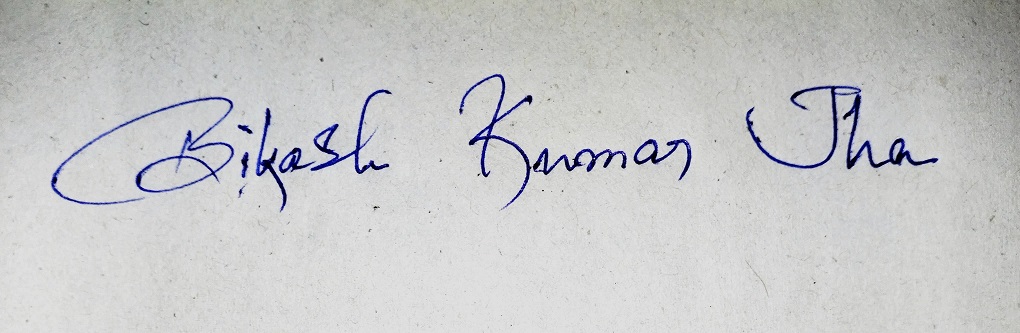 Bikash Kumar Jha